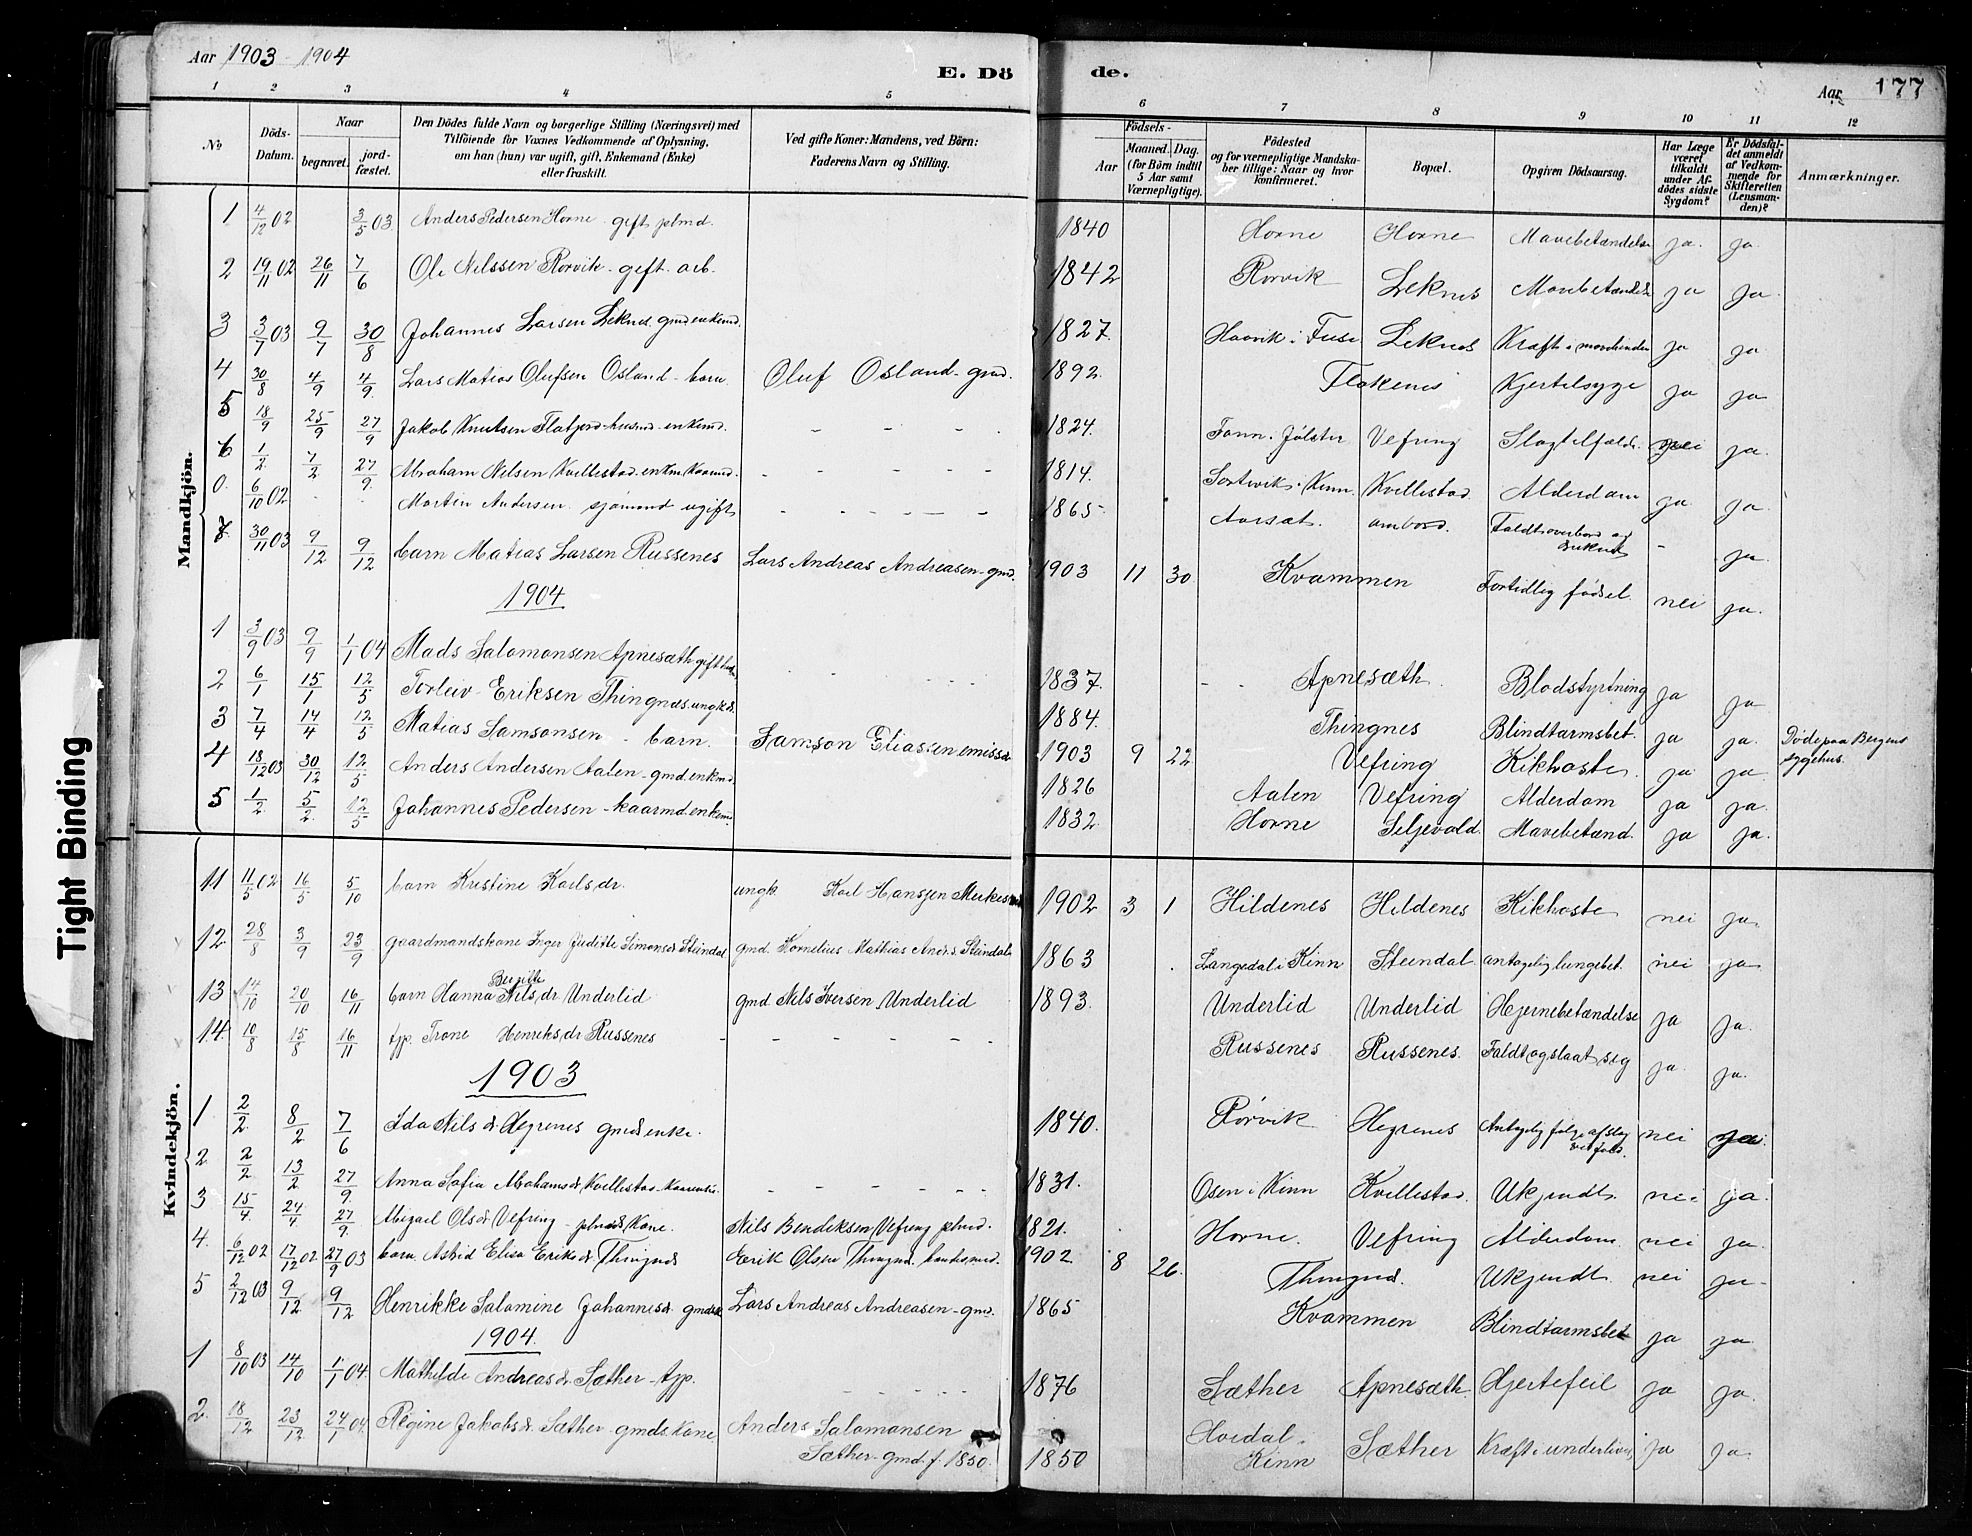 Aar 1903 - 1904
E. Dö de.
Aar 177
1 2 3 4 5 6 7 8 9 10 11 12
No
Döds-Datum.
Naar
begravet.
jord-fæstet.
Den Dödes fulde Navn og borgerlige Stilling (Næringsvei) med
Tilföiende for Voxnes Vedkommende af Oplysning,
om han (hun) var ugift, gift, Enkemand (Enke)
eller fraskilt.
Ved gifte Koner: Mandens, ved Börn:
Faderens Navn og Stilling.
Födsels-
Aar
Maaned. Dag.
(for Börn indtil
5 Aar samt
Værnepligtige).
Födested
og for værnepligtige Mandska-
ber tillige: Naar og hvor
konfirmeret.
Bopæl.
Opgiven Dödsaarsag.
Har Læge
været
tilkaldt
under Af-
dödes sidste
Sygdom?
Er Dödsfal-
det anmeldt
af Vedkom-
mende for
Skifteretten
(Lensman-
den)?
Anmærkninger.
Mandkjön.
1 4/12 02 3/5 03 Anders Pedersen Horne gift plmd. 1840 Horne Horne Mavebetændelse ja ja
2 19/11 02 26/11 7/6 Ole Nilssen Rorvik gift arb. 1842 Rorvik Leknes Mavebetændelse ja ja
3 3/7 03 9/7 30/8 Johannes Larsen Leknes gmd enkemd. 1827 Havik i Fuse Leknes Kræft i ja ja
4 30/8 4/9 4/9 Lars Matias Olufsen Osland - barn Oluf Osland - gmd. 1892 Flekenes Kjertelsyge ja ja
5 18/9 25/9 27/9 Jakob Knutsen Flatjord - husmd - enkemd. 1824 Fonn i Jölster Vefring Slagtilfælde nei ja
6 1/2 7/2 27/9 Abraham Nilsen Kvellestad enkm. kaarmd. 1814 Kinn Kvellestad Alderdom ja ja
0. 6/10 02 Martin Andersen sjömand ugift 1865 Aarsæt ombord. Faldt overbord og druknet - ja
7. 30/11 03 9/12 9/12 barn Matias Larsen Russenes Lars Andreas Andreasen - gmd. 1903 11 30 Kvammen Fortidlig födsel nei ja
1904
1 3/9 03 9/9 1/1 04 Mads Salomonsen Apnesæth gift 1837 Apnesæth Blodstyrtning ja ja
2 6/1 15/1 12/5 Torleiv Eriksen Thingnes ungk. 1884 Thingnes Blindtarmsbet. ja ja Döde paa Bergens sygehus.
3 7/4 14/4 12/5 Matias Samsonsen - barn. Samson Eliassen 1903 9 22 Vefring Kikhoste ja ja
4 18/12 03 30/12 12/5 Anders Andersen Aalen - gmd. enkmd. 1826 Aalen Vefring Alderdom ja ja
5 1/2 5/2 12/5 Johannes Pedersen - kaarmd. enkem. 1832 Horne Seljevold Mavebetænd. ja ja
Kvindekjön.
11 11/5 02 16/5 5/10 barn Kristine Karlsdr. ungk. Karl Hanssen 1902 3 1 Hildenes Hildenes Kikhoste nei ja
12 28/8 3/9 23/9 gaardmandskone Inger Juditte Simonsd Steindal gmd. Kornelius Mathias Andr.s. Steindal 1863 Langedal i Kinn Steindal antagelig lungebet. nei ja
13 14/10 20/10 16/11 barn Hanna Bergitte Nilsdr Underlid gmd Nils Iversen Underlid 1893 Underlid Underlid Hjernebetændelse ja ja
14. 10/8 15/8 16/11 tjp. Trone Henriksdr Russenes Russenes Russenes Faldt og slaat seg ja ja
1903
1 2/2 8/2 7/6 Ida Nilsd. Hegrenes gmds enke. 1840 Rörvik Hegrenes Antagelig følge af slag ved fald. nei ja
2 2/2 13/2 27/9 Anna Sofia Abrahamsdr Kvellestad 1831 Osen i Kinn Kvellestad Ukjendt nei ja
3 15/4 24/4 27/9 Abigael Olsdr Vefring - plmds kone. Nils Bendiksen Vefring plmd. 1821 Horne. Vefring Alderdom nei ja
4. 6/12 02 17/12 02 27/9 03 barn Astrid Elisa Eriksdr Thingnes Erik Olsen Thingnes 1902 8 26 Thingnes. Ukjendt nei ja
5 2/12 03 9/12 9/12 Henrikke Salomine Johannesd. gmdsk Lars Andreas Andreasen - gmd. 1865 Kvammen Blindtarmsbet ja ja
1904.
1 8/10 03 14/10 1/1 04 Mathilde Andreasdr Sæther - tjp. 1876 Sæther Apnesæth Hjertefeil ja ja
2. 18/12 23/12 24/1 04 Regine Jakobsd. Sæther gmds kone Anders Salomonsen Sæther - gmd. f. 1850. 1850 Hovdal - Kinn Sæther Kræft i underlivet ja ja
Tight Binding